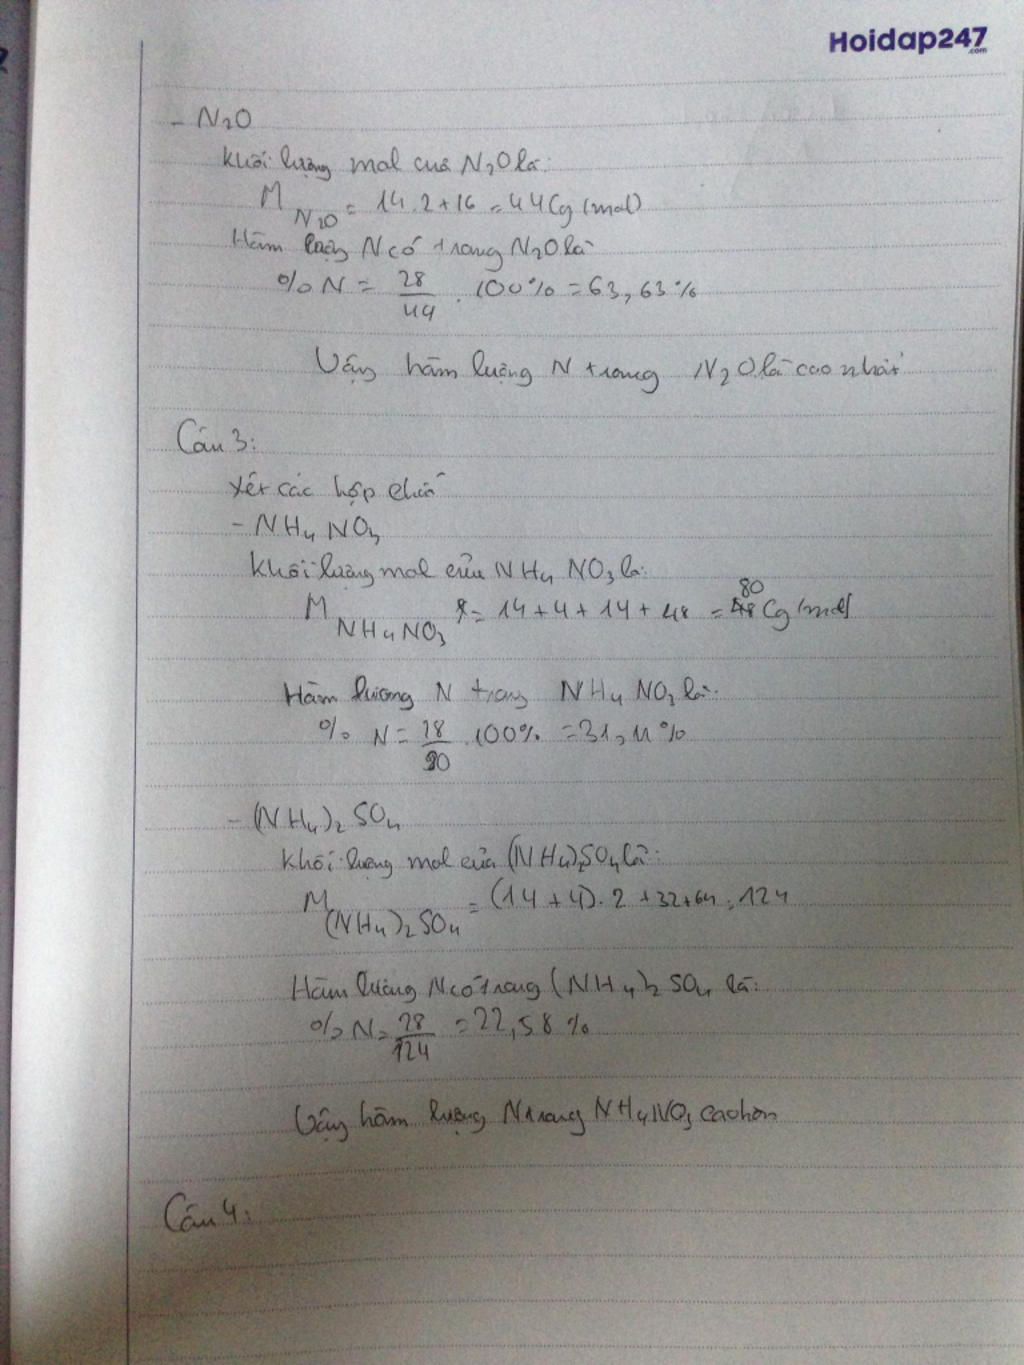 Hoidap247
.com
- N₂O
Khối lượng mol của N₂O là:
M N₂O = 14.2+16 = 44 (g/mol)
Hàm lượng N có trong N₂O là
% N = 28/44 . 100% = 63,63%
Vậy hàm lượng N trong N₂O là cao nhất
Câu 3:
Xét các hợp chất
- NH₄NO₃
Khối lượng mol của NH₄NO₃ là:
M NH₄NO₃ = 14+4+14+48 = 80 (g/mol)
Hàm lượng N trong NH₄NO₃ là:
% N = 28/90 . 100% = 31,11%
- (NH₄)₂SO₄
Khối lượng mol của (NH₄)₂SO₄ là:
M (NH₄)₂SO₄ = (14+4).2+32+64 = 124
Hàm lượng N có trong (NH₄)₂SO₄ là:
% N = 28/124 = 22,58%
Vậy hàm lượng N trong NH₄NO₃ cao hơn
Câu 4: